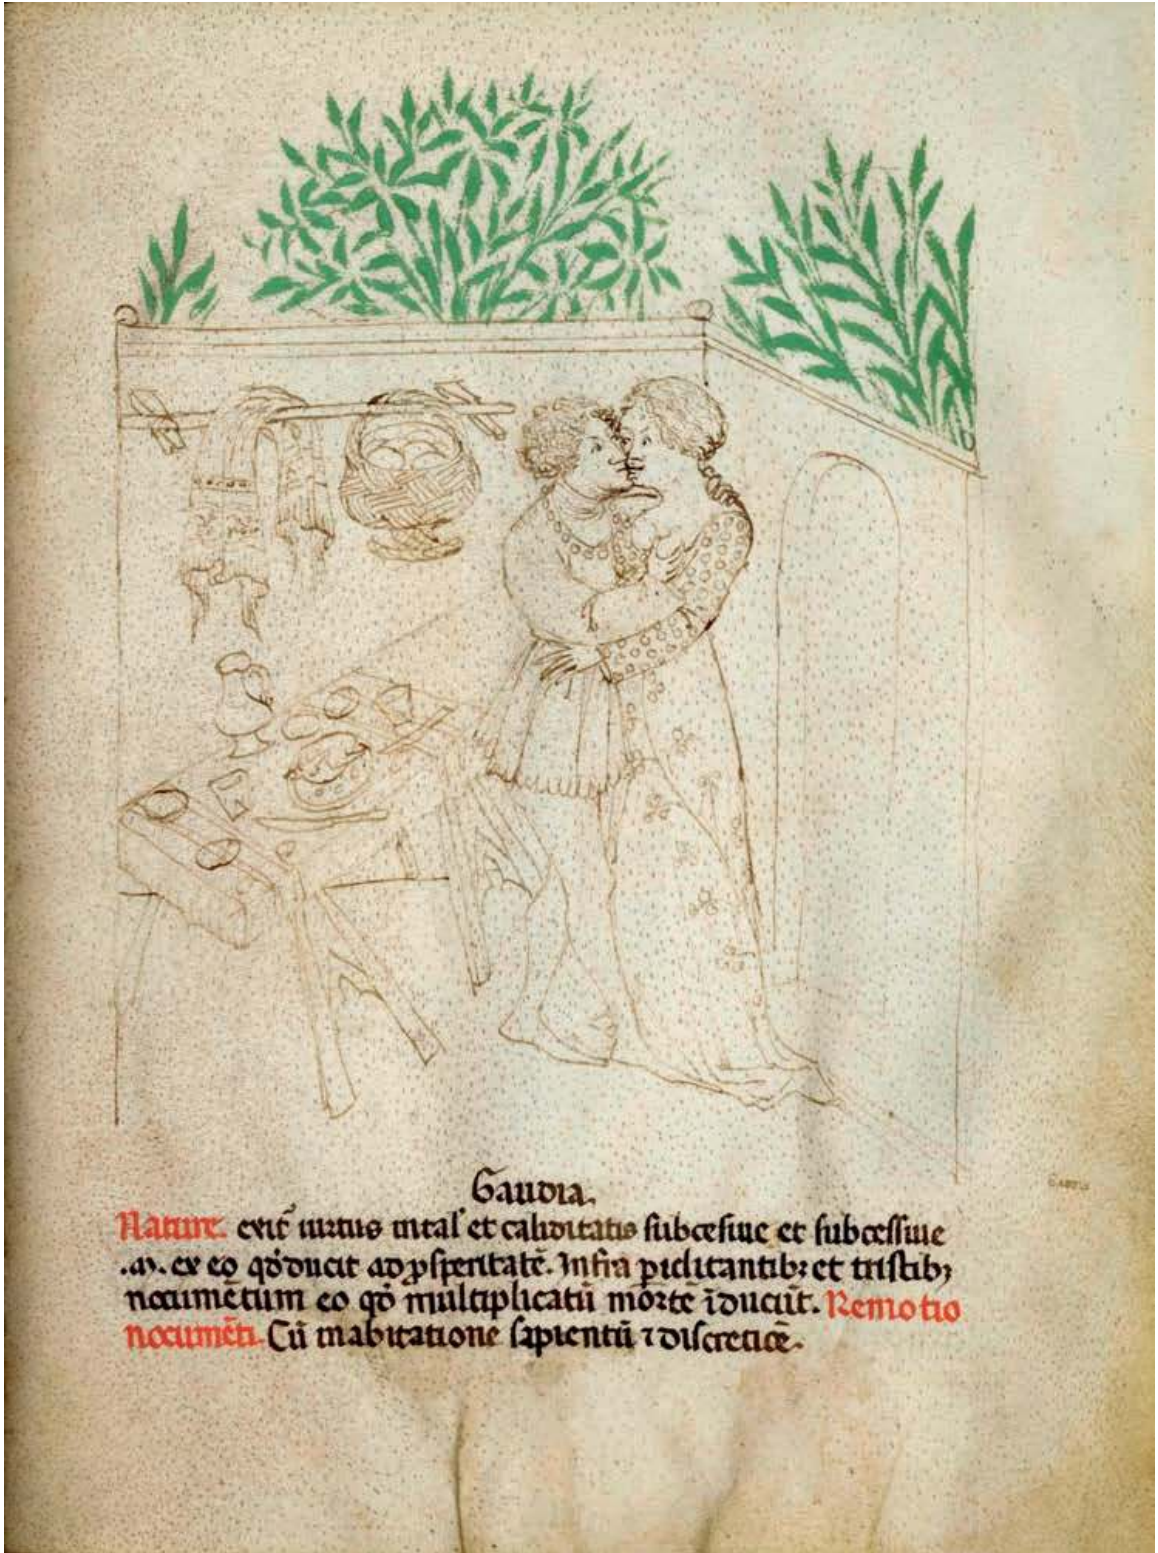 Gaudia.
Nature. exit᷑ uirtus uital' et caliditatis subcesiue et subcessiue
.a. ex eo qd̛ ducit ad ꝓsperitatē. Infra piclitantib; et tristib;
nocumētum eo qd̛ multiplicatū mortē īducūt. Remotio
nocumēti. Cū inabitatione sapientū ⁊ discretiōē.